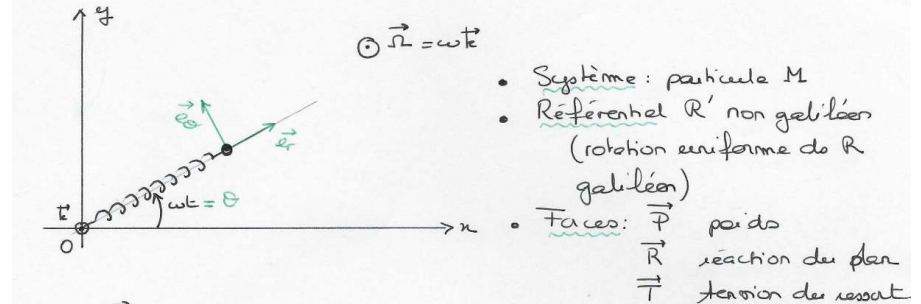 y
⊙ Ω⃗ = ωk⃗
e⃗θ
e⃗r
k⃗
ωt = θ
O
x
• Système : particule M
• Référentiel R' non galiléen
(rotation uniforme ds R
galiléen)
• Forces : P⃗ poids
R⃗ réaction du plan
T⃗ tension du ressort